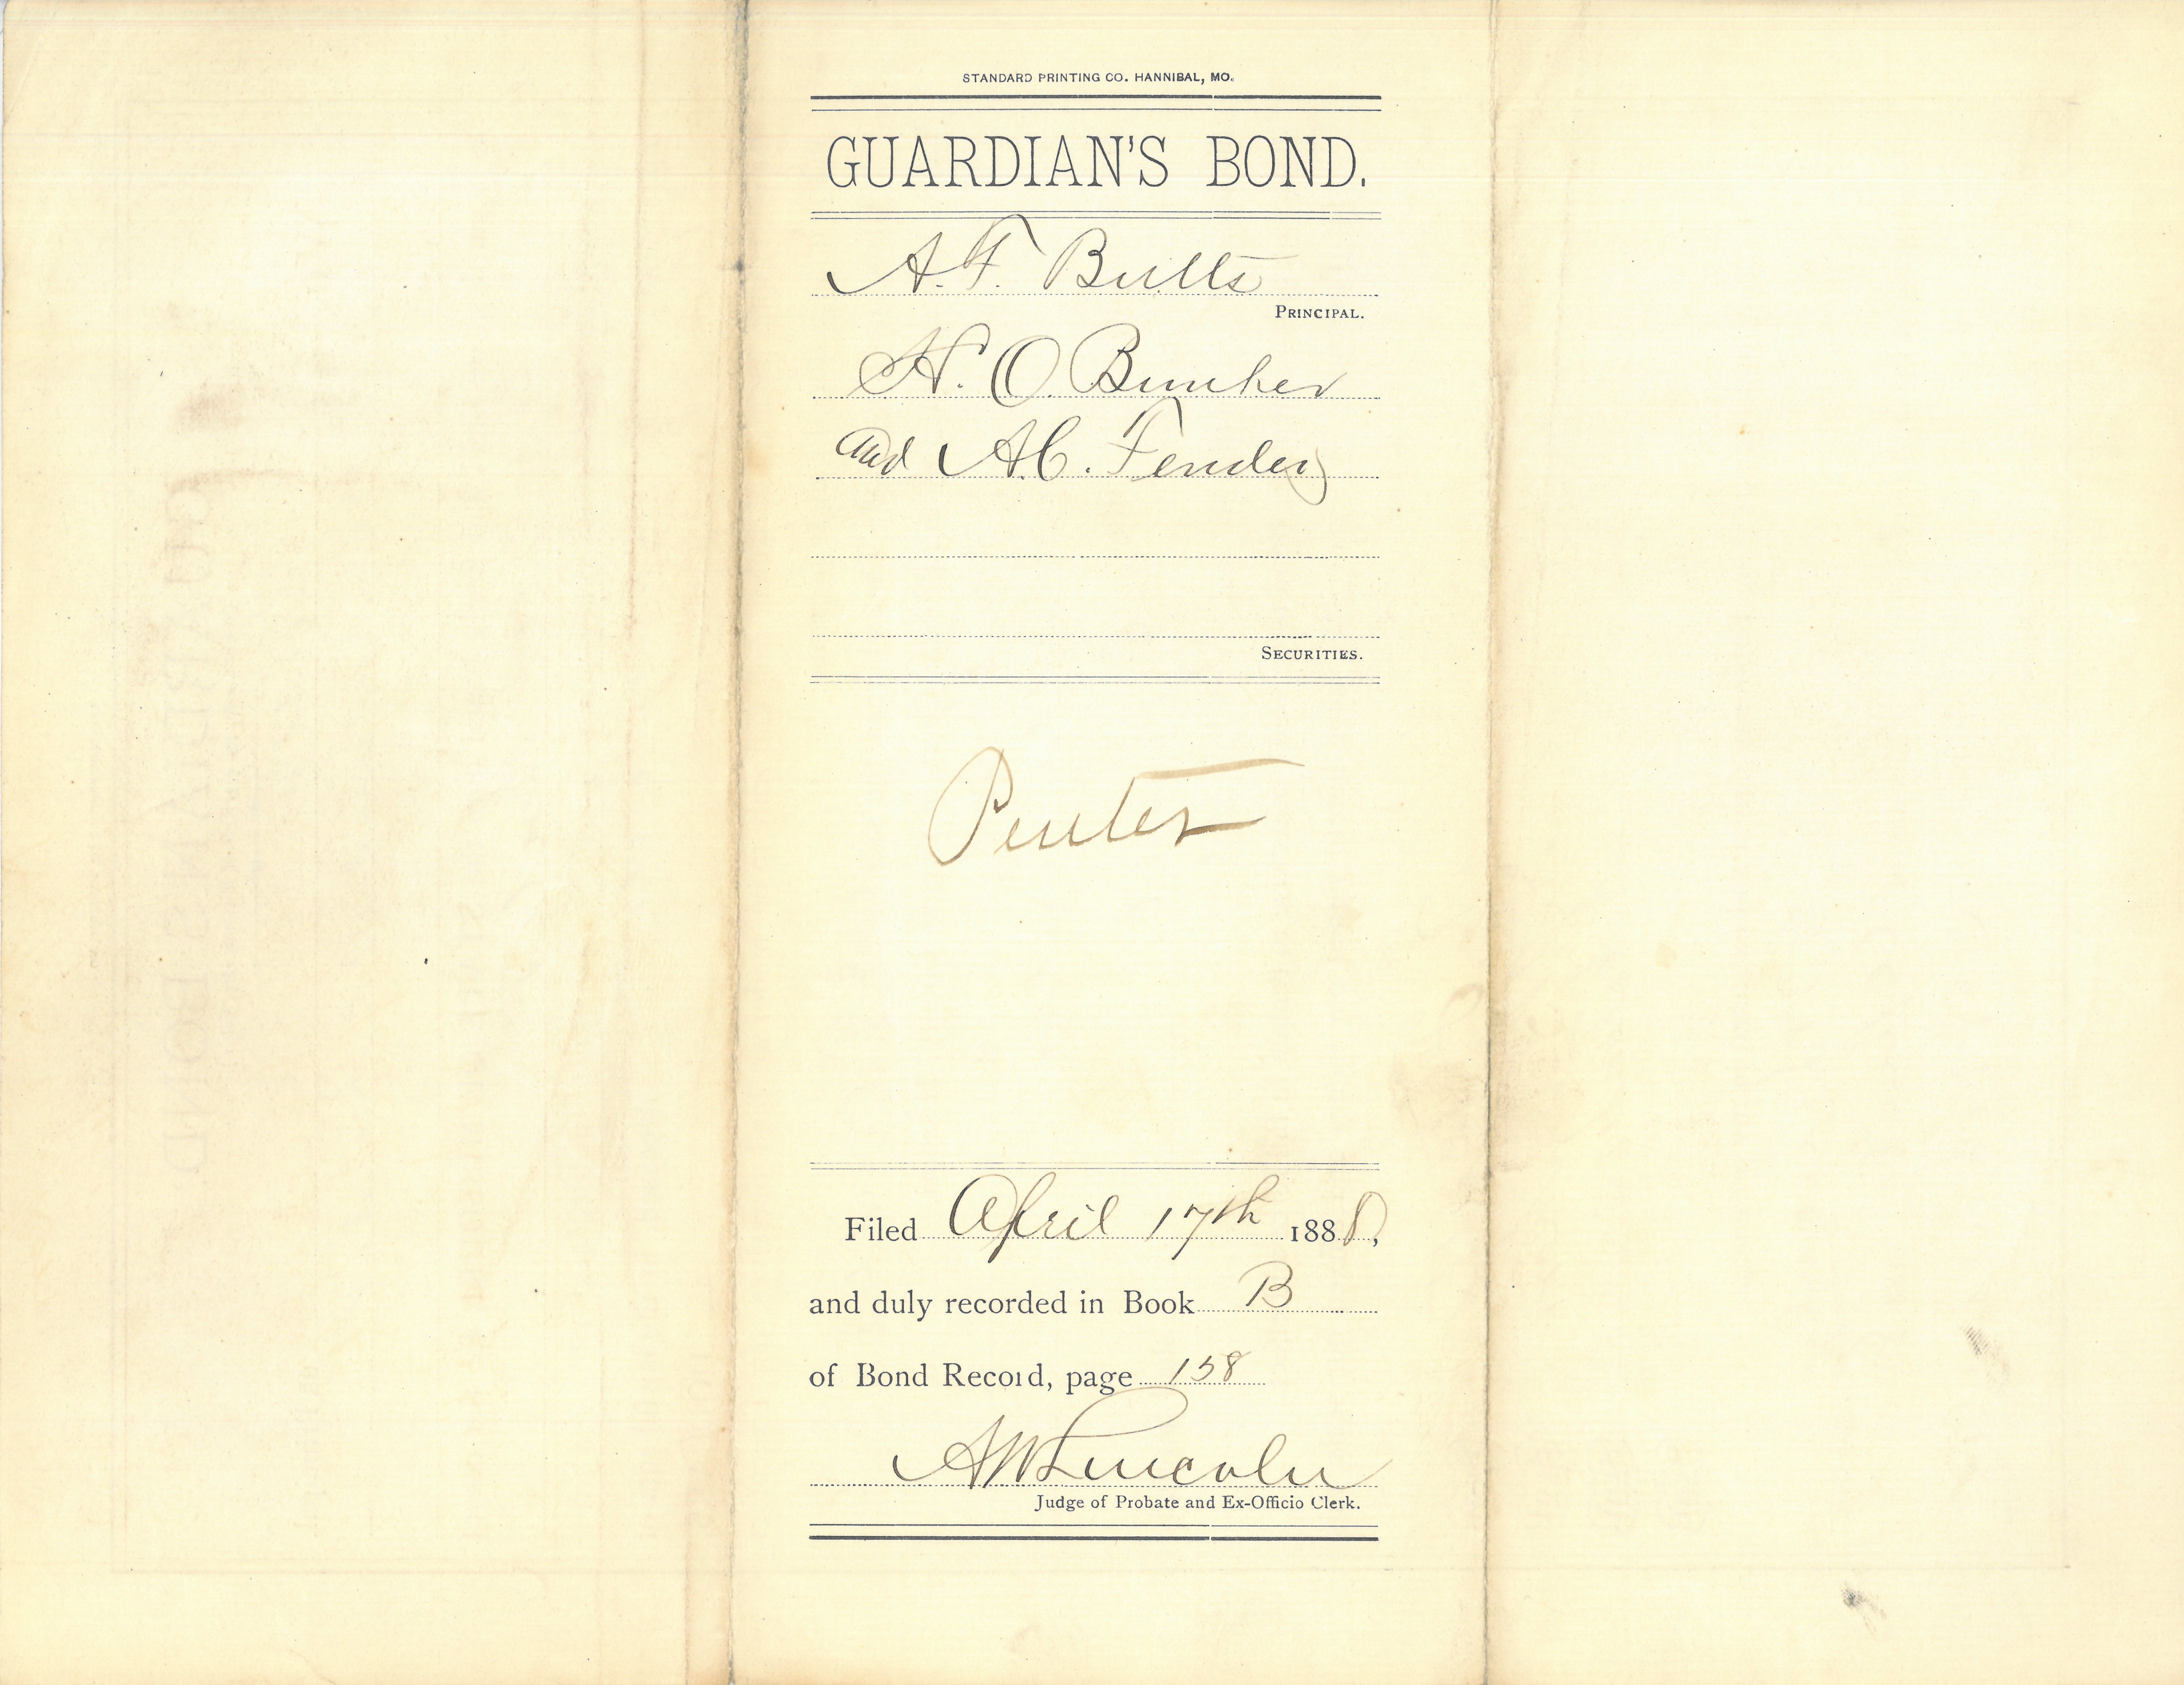 STANDARD PRINTING CO. HANNIBAL, MO.
GUARDIAN'S BOND.
A. F. Butts
PRINCIPAL.
H. O. Bunker
and A. C. Fender
SECURITIES.
Penter
Filed April 17th 1888,
and duly recorded in Book B
of Bond Record, page 158
A W Lincoln
Judge of Probate and Ex-Officio Clerk.